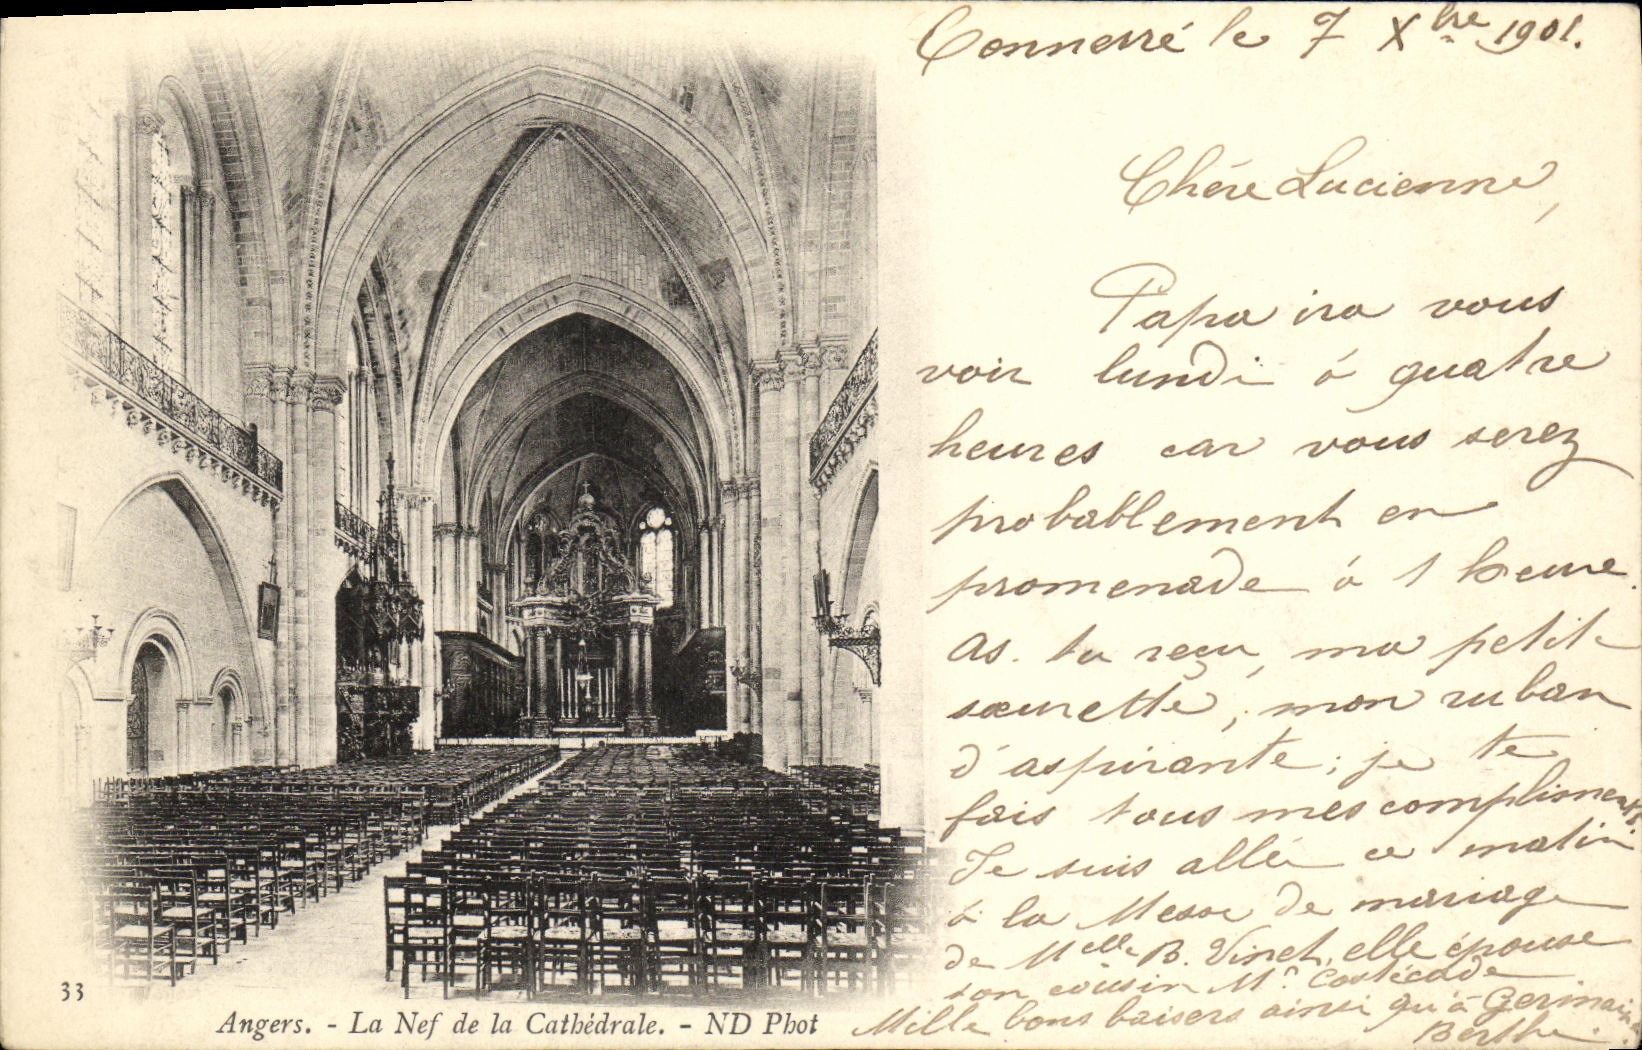 Connerré le 7 Xbre 1901.
Chère Lucienne,
Papa ira vous
voir lundi à quatre
heures car vous serez
probablement en
promenade à 1 heure.
As. tu reçu, ma petite
sœurette, mon ruban
d'aspirante; je te
fais tous mes compliments.
Je suis allée ce matin
à la Messe de mariage
de Melle B. Vinet, elle épouse
son cousin Mr
Mille bons baisers ainsi qu'à Germaine
Berthe.
33
Angers. - La Nef de la Cathédrale. - ND Phot